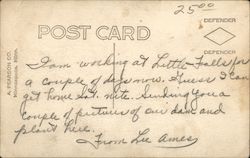 25.00
POST CARD
DEFENDER
DEFENDER
A. PEARSON CO.
Minneapolis, Minn.
I am working at Little Falls for
a couple of days now. Guess I can
get home Sat. nite. Sending you a
couple of pictures of our dam and
plant here.
From Lee Ames